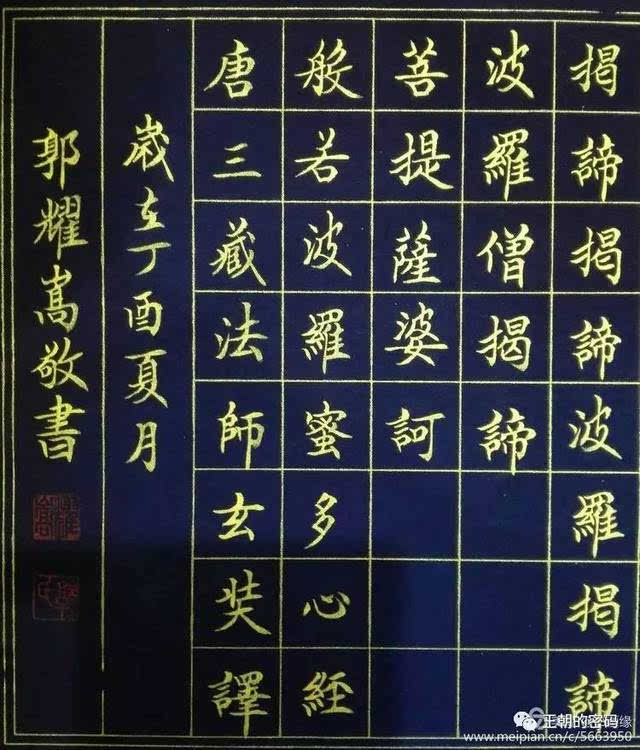 揭諦揭諦波羅揭諦
波羅僧揭諦
菩提薩婆訶
般若波羅蜜多心經
唐三藏法師玄奘譯
歲在丁酉夏月
郭耀嵩敬書
王朝的密码
www.meipian.cn/c/5663950